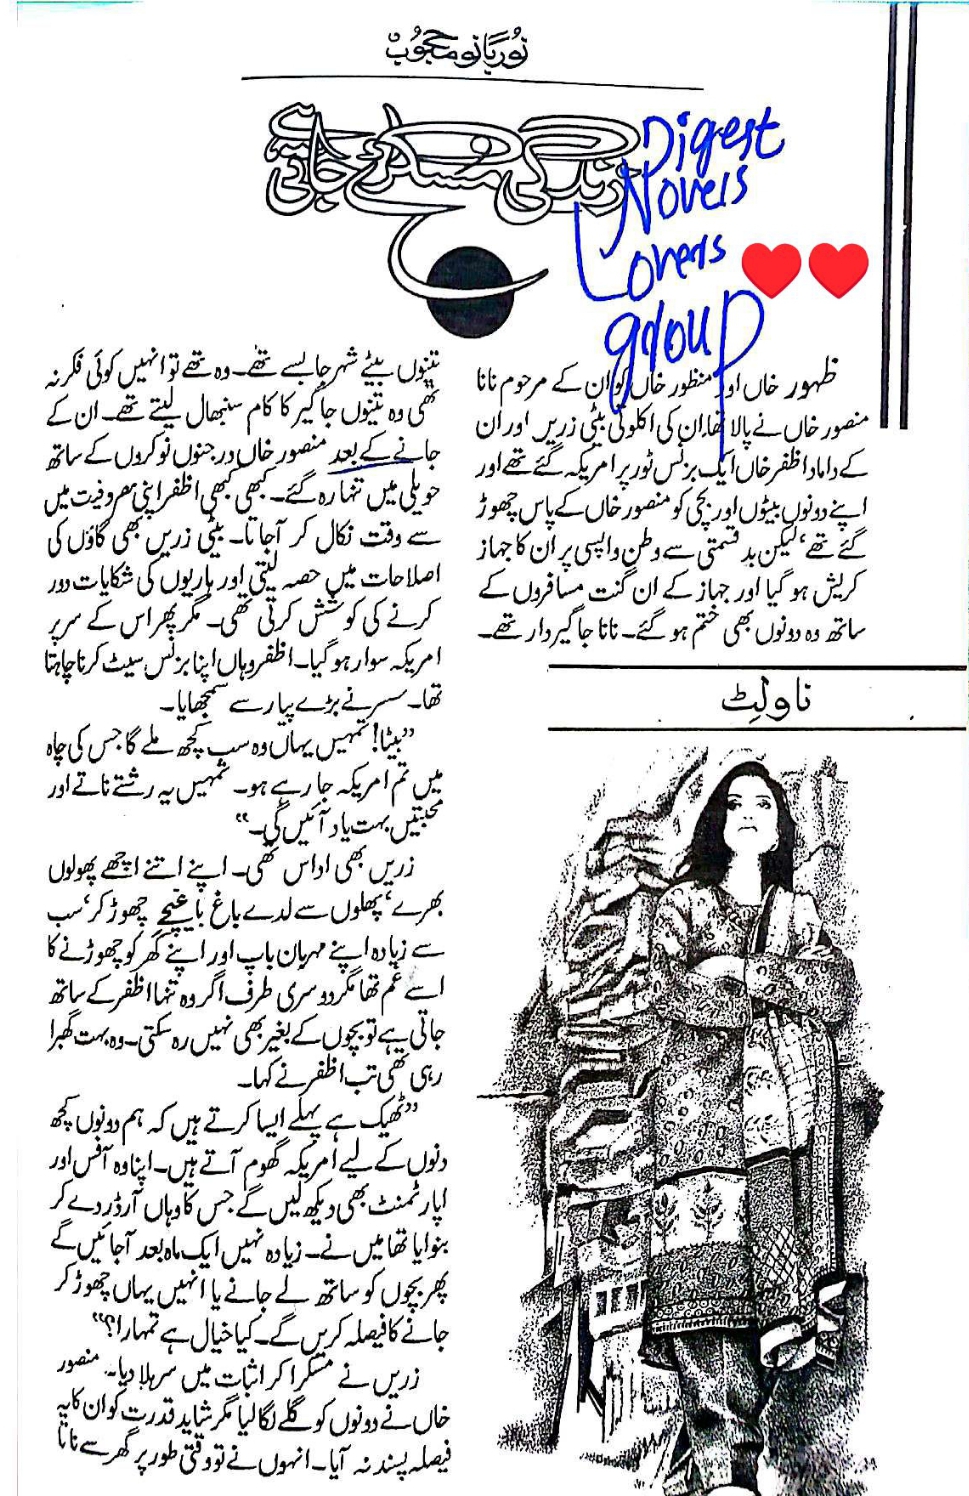 نور بانو محجوب
زندگی مسکرائے جاتی ہے
Digest
Novels
Lovers
group
ظہور خاں اور منظور خاں کو ان کے مرحوم نانا
منصور خاں نے پالا تھا۔ ان کی اکلوتی بیٹی زریں اور ان
کے داماد اظفر خاں ایک بزنس ٹور پر امریکہ گئے تھے اور
اپنے دونوں بیٹوں اور بچی کو منصور خاں کے پاس چھوڑ
گئے تھے‘ لیکن بد قسمتی سے وطن واپسی پر ان کا جہاز
کریش ہو گیا اور جہاز کے ان گنت مسافروں کے
ساتھ وہ دونوں بھی ختم ہو گئے۔ نانا جاگیردار تھے۔
ناولٹ
تینوں بیٹے شہر جا بسے تھے۔ وہ تھے تو انہیں کوئی فکر نہ
تھی وہ تینوں جاگیر کا کام سنبھال لیتے تھے۔ ان کے
جانے کے بعد منصور خاں درجنوں نوکروں کے ساتھ
حویلی میں تنہا رہ گئے۔ کبھی کبھی اظفر اپنی مصروفیت میں
سے وقت نکال کر آجاتا۔ بیٹی زریں بھی گاؤں کی
اصلاحات میں حصہ لیتی اور ہاریوں کی شکایات دور
کرنے کی کوشش کرتی تھی۔ مگر پھر اس کے سر پر
امریکہ سوار ہو گیا۔ اظفر وہاں اپنا بزنس سیٹ کرنا چاہتا
تھا۔ سسر نے بڑے پیار سے سمجھایا۔
”بیٹا! تمہیں یہاں وہ سب کچھ ملے گا جس کی چاہ
میں تم امریکہ جا رہے ہو۔ تمہیں یہ رشتے ناتے اور
محبتیں بہت یاد آئیں گی۔“
زریں بھی اداس تھی۔ اپنے اتنے اچھے پھولوں
بھرے‘ پھلوں سے لدے باغ باغیچے چھوڑ کر‘ سب
سے زیادہ اپنے مہربان باپ اور اپنے گھر کو چھوڑنے کا
اسے غم تھا مگر دوسری طرف اگر وہ تنہا اظفر کے ساتھ
جاتی ہے تو بچوں کے بغیر بھی نہیں رہ سکتی۔ وہ بہت گھبرا
رہی تھی تب اظفر نے کہا۔
”ٹھیک ہے پہلے ایسا کرتے ہیں کہ ہم دونوں کچھ
دنوں کے لیے امریکہ گھوم آتے ہیں۔ اپنا وہ آفس اور
اپارٹمنٹ بھی دیکھ لیں گے جس کا وہاں آرڈر دے کر
بنوایا تھا میں نے۔ زیادہ نہیں ایک ماہ بعد آجائیں گے
پھر بچوں کو ساتھ لے جانے یا انہیں یہاں چھوڑ کر
جانے کا فیصلہ کریں گے۔ کیا خیال ہے تمہارا؟“
زریں نے مسکرا کر اثبات میں سر ہلا دیا۔ منصور
خاں نے دونوں کو گلے لگا لیا مگر شاید قدرت کو ان کا یہ
فیصلہ پسند نہ آیا۔ انہوں نے تو وقتی طور پر گھر سے ناتا